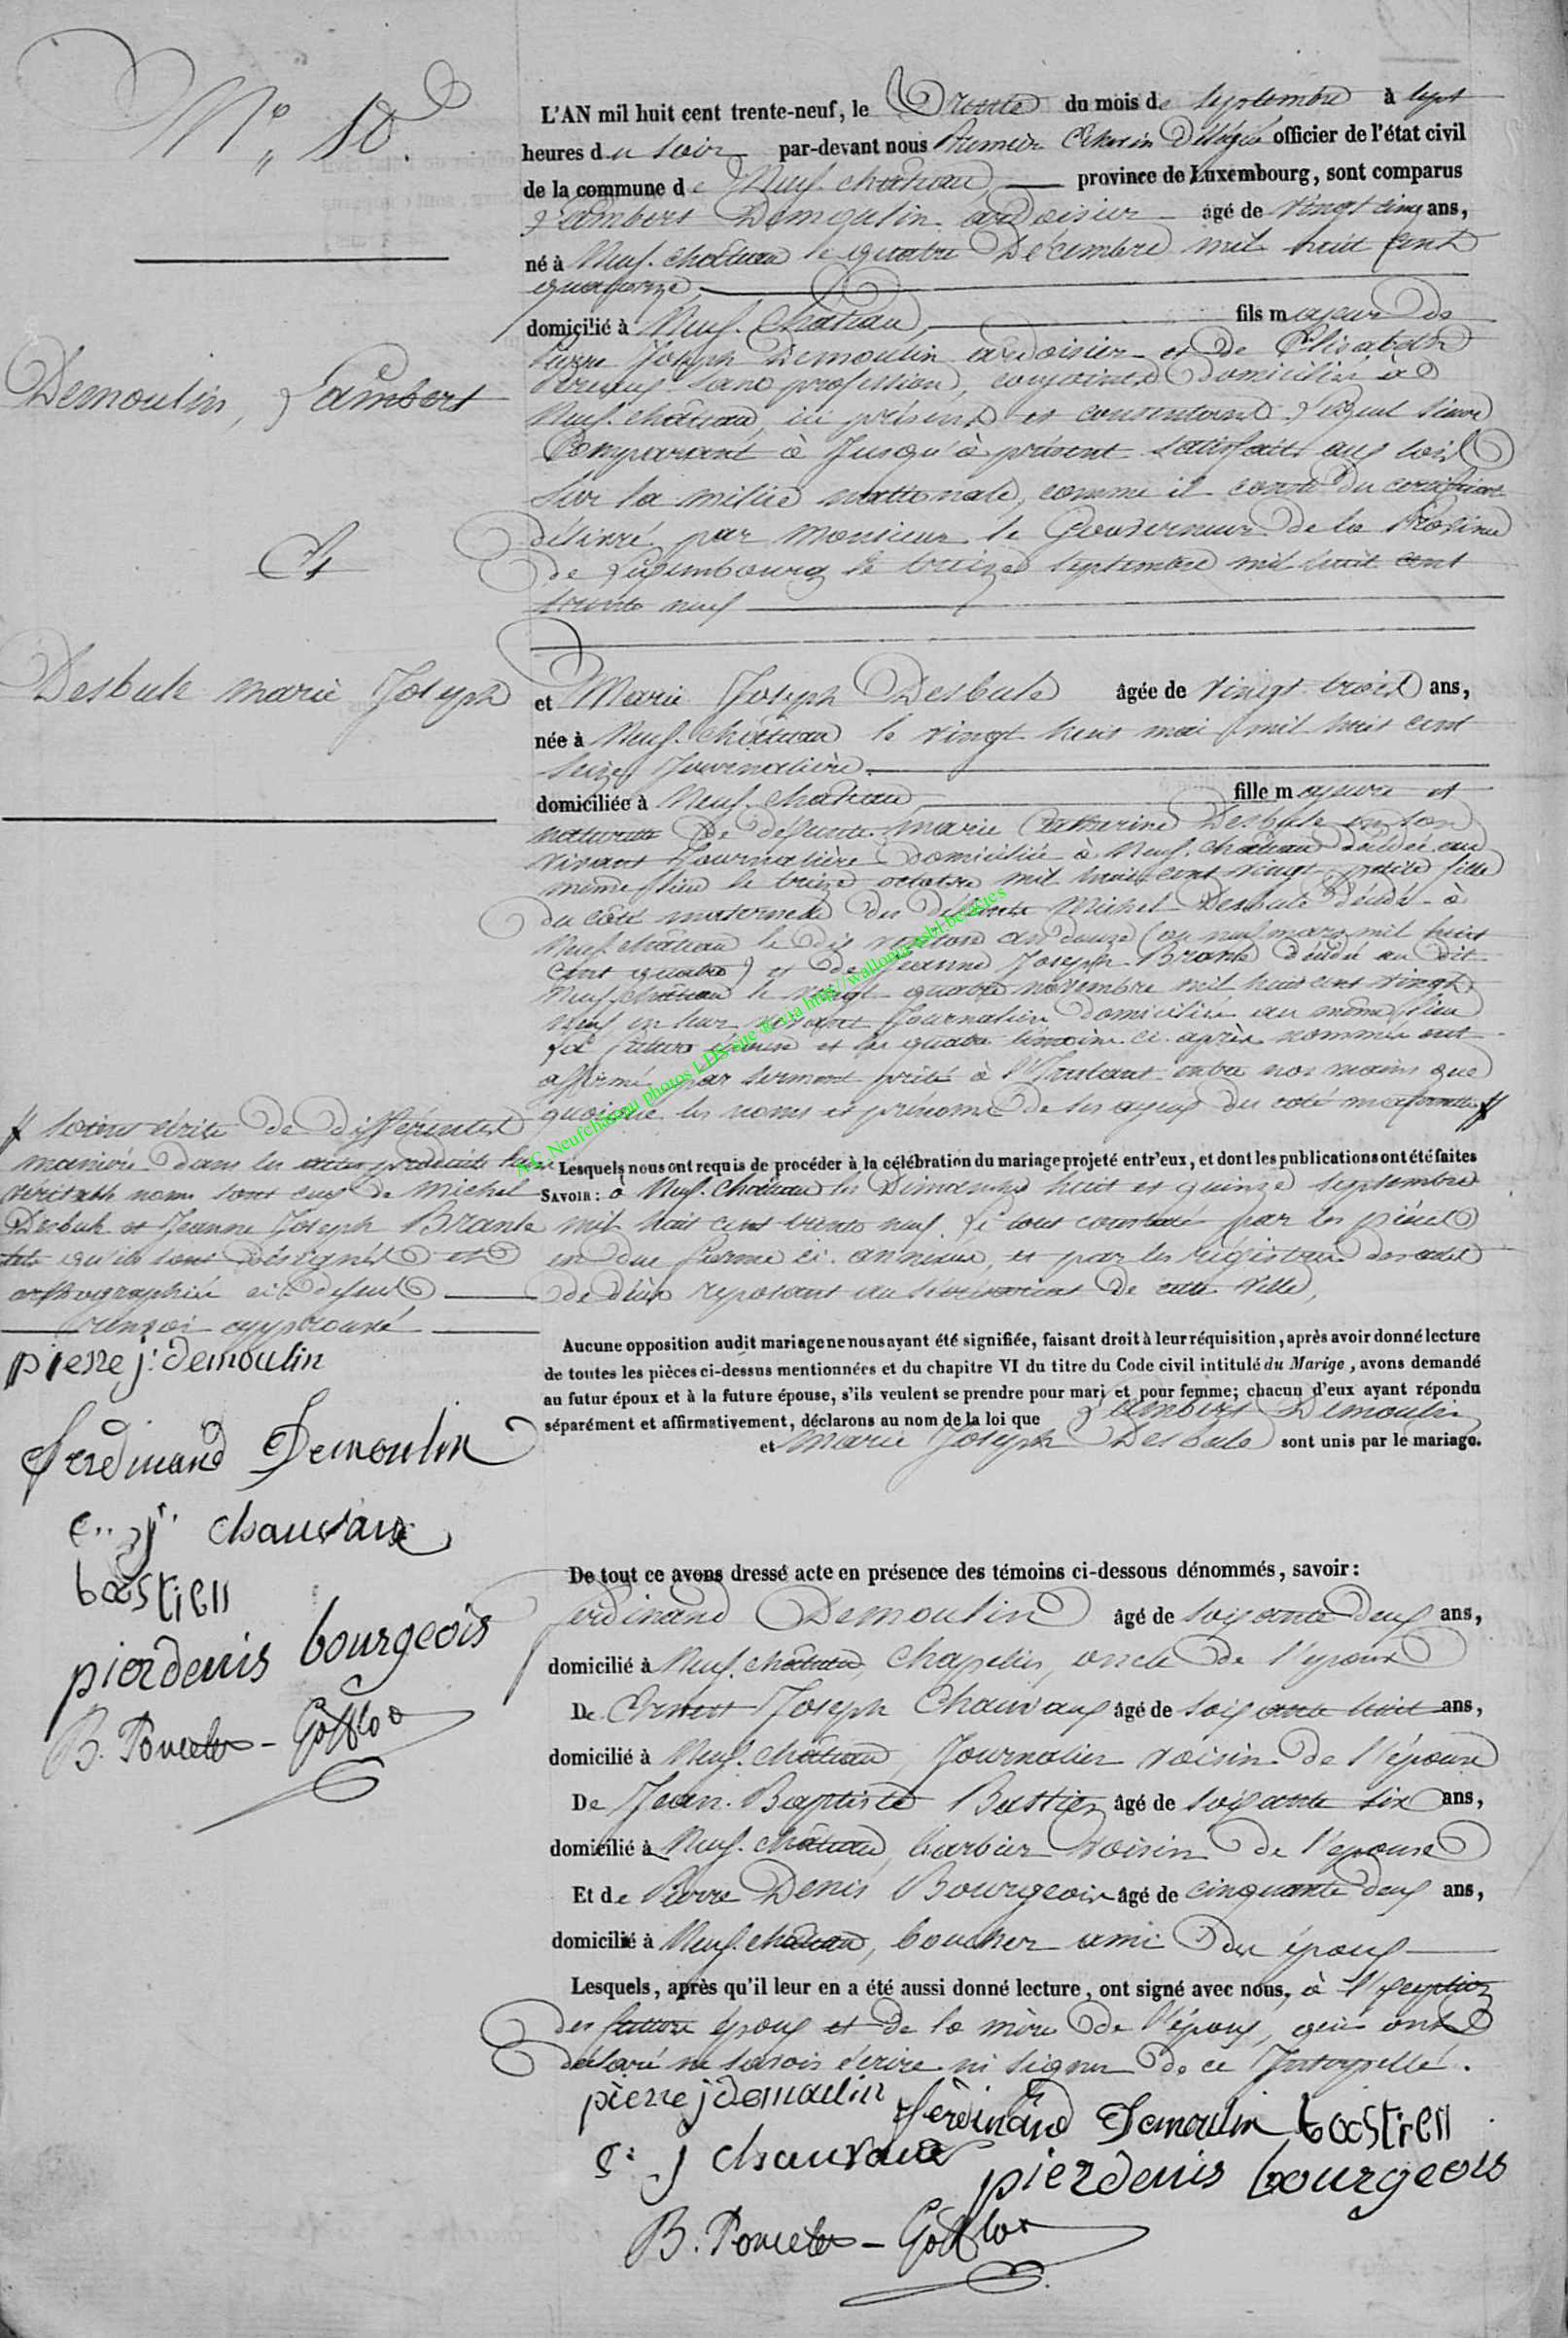 N° 18.
L'AN mil huit cent trente-neuf, le Trente du mois de Septembre à Sept
heures du soir par-devant nous Premier Echevin Délégué officier de l'état civil
de la commune de Neuf-château, province de Luxembourg, sont comparus
Lambert Demoulin ardoisier âgé de vingt cinq ans,
né à Neuf-château le quatre Décembre mil huit cent
quatorze,
domicilié à Neuf-Château, fils majeur de
Pierre Joseph Demoulin ardoisier et de Elisabeth
sans profession, conjoints domiciliés à
Neuf-château, ici présents et consentants Lequel
Comparant à Jusqu'à présent satisfait aux lois
sur la milice nationale, comme il conste du certificat
délivré par Monsieur le Gouverneur de la Province
de Luxembourg le treize Septembre mil huit cent
trente neuf
Demoulin, Lambert
Et
Desbule marie Joseph
et Marie Joseph Desbule âgée de vingt trois ans,
née à Neuf-Château le vingt huit mai mil huit cent
Seize, Journalière.
domiciliée à Neuf-château fille majeure et
naturelle de défunte marie Catherine Desbule en son
vivant Journalière domiciliée à Neuf-château décédée au
même lieu le treize octobre mil huit cent vingt, petite fille
du côté maternelle des défunts Michel Desbule décédé à
Neuf-château le dix ventose an douze (ou neuf mars mil huit
cent quatre) et de Jeanne Joseph Brank décédée au dit
Neufchâteau le vingt quatre novembre mil huit cent vingt
neuf en leur vivant Journaliers domiciliés au même lieu
La future épouse et les quatre témoins ci-après nommés ont
affirmé par serment prêté à l'Instant entre nos mains que
quoique les noms et prénoms de ses ayeux du coté maternelle //
// soient écrits de différentes
manière dans les actes produits leurs
véritable noms sont ceux de Michel
Desbule et Jeanne Joseph Brank
tels qu'ils sont désignés et
orthographiés ci-dessus,
renvoi approuvé
pierre j: demoulin
Ferdinand Demoulin
e.. j: chauvaux
bastien
pierdenis bourgeois
B. Poncelet-Gofflot
Lesquels nous ont requis de procéder à la célébration du mariage projeté entr'eux, et dont les publications ont été faites
SAVOIR: à Neuf-Château les Dimanches huit et quinze septembre
mil huit cent trente neuf, Le tout constaté par les pièces
en due forme ci-annexées, et par les régistres des actes
de décès reposant au secrétariat de cette Ville,
Aucune opposition audit mariage ne nous ayant été signifiée, faisant droit à leur réquisition, après avoir donné lecture
de toutes les pièces ci-dessus mentionnées et du chapitre VI du titre du Code civil intitulé du Marige, avons demandé
au futur époux et à la future épouse, s'ils veulent se prendre pour mari et pour femme; chacun d'eux ayant répondu
séparément et affirmativement, déclarons au nom de la loi que Lambert Demoulin
et Marie Joseph Desbule sont unis par le mariage.
De tout ce avons dressé acte en présence des témoins ci-dessous dénommés, savoir:
ferdinand Demoulin âgé de soixante deux ans,
domicilié à Neuf-château, chapelier, oncle de l'époux
De Ernest Joseph Chauvaux âgé de soixante huit ans,
domicilié à Neuf-château, Journalier voisin de l'épouse
De Jean-Baptiste Bastien âgé de soixante six ans,
domicilié à Neuf-château, barbier voisin de l'épouse
Et de Pierre Denis Bourgeois âgé de cinquante deux ans,
domicilié à Neuf-château, boucher ami du époux
Lesquels, après qu'il leur en a été aussi donné lecture, ont signé avec nous, à l'exception
des futurs époux et de la mère de l'époux, qui ont
déclaré ne savoir écrire ni signer de ce Interpellé.
pierre j demoulin ferdinand Demoulin bastien
e: j chauvaux pierdenis bourgeois
B. Poncelet-Gofflot